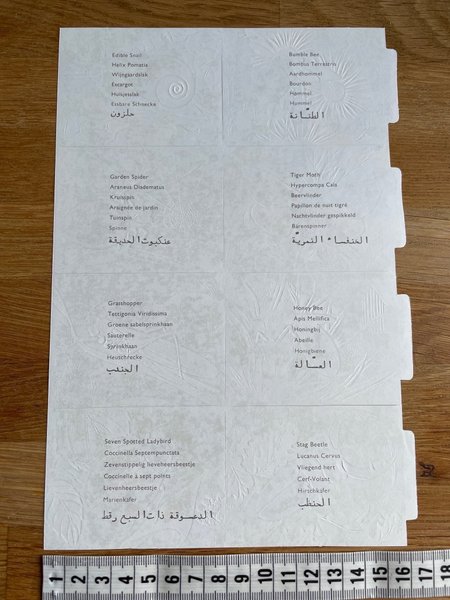 Edible Snail
Helix Pomatia
Wijngaardslak
Escargot
Huisjesslak
Essbare Schnecke
حلزون
Bumble Bee
Bombus Terrestris
Aardhommel
Bourdon
Hommel
Hummel
الطنّانة
Garden Spider
Araneus Diadematus
Kruisspin
Araignée de jardin
Tuinspin
Spinne
عنكبوت الحديقة
Tiger Moth
Hypercompa Caia
Beervlinder
Papillon de nuit tigré
Nachtvlinder gespikkeld
Bärenspinner
الخنفساء النمريّة
Grasshopper
Tettigonia Viridissima
Groene sabelsprinkhaan
Sauterelle
Sprinkhaan
Heuschrecke
الجندب
Honey Bee
Apis Mellifica
Honingbij
Abeille
Honigbiene
العسّالة
Seven Spotted Ladybird
Coccinella Septempunctata
Zevenstippelig lieveheersbeestje
Coccinelle à sept points
Lievenheersbeestje
Marienkäfer
الدعسوقة ذات السبع رقط
Stag Beetle
Lucanus Cervus
Vliegend hert
Cerf-Volant
Hirschkäfer
الحنطب
1 2 3 4 5 6 7 8 9 10 11 12 13 14 15 16 17 18